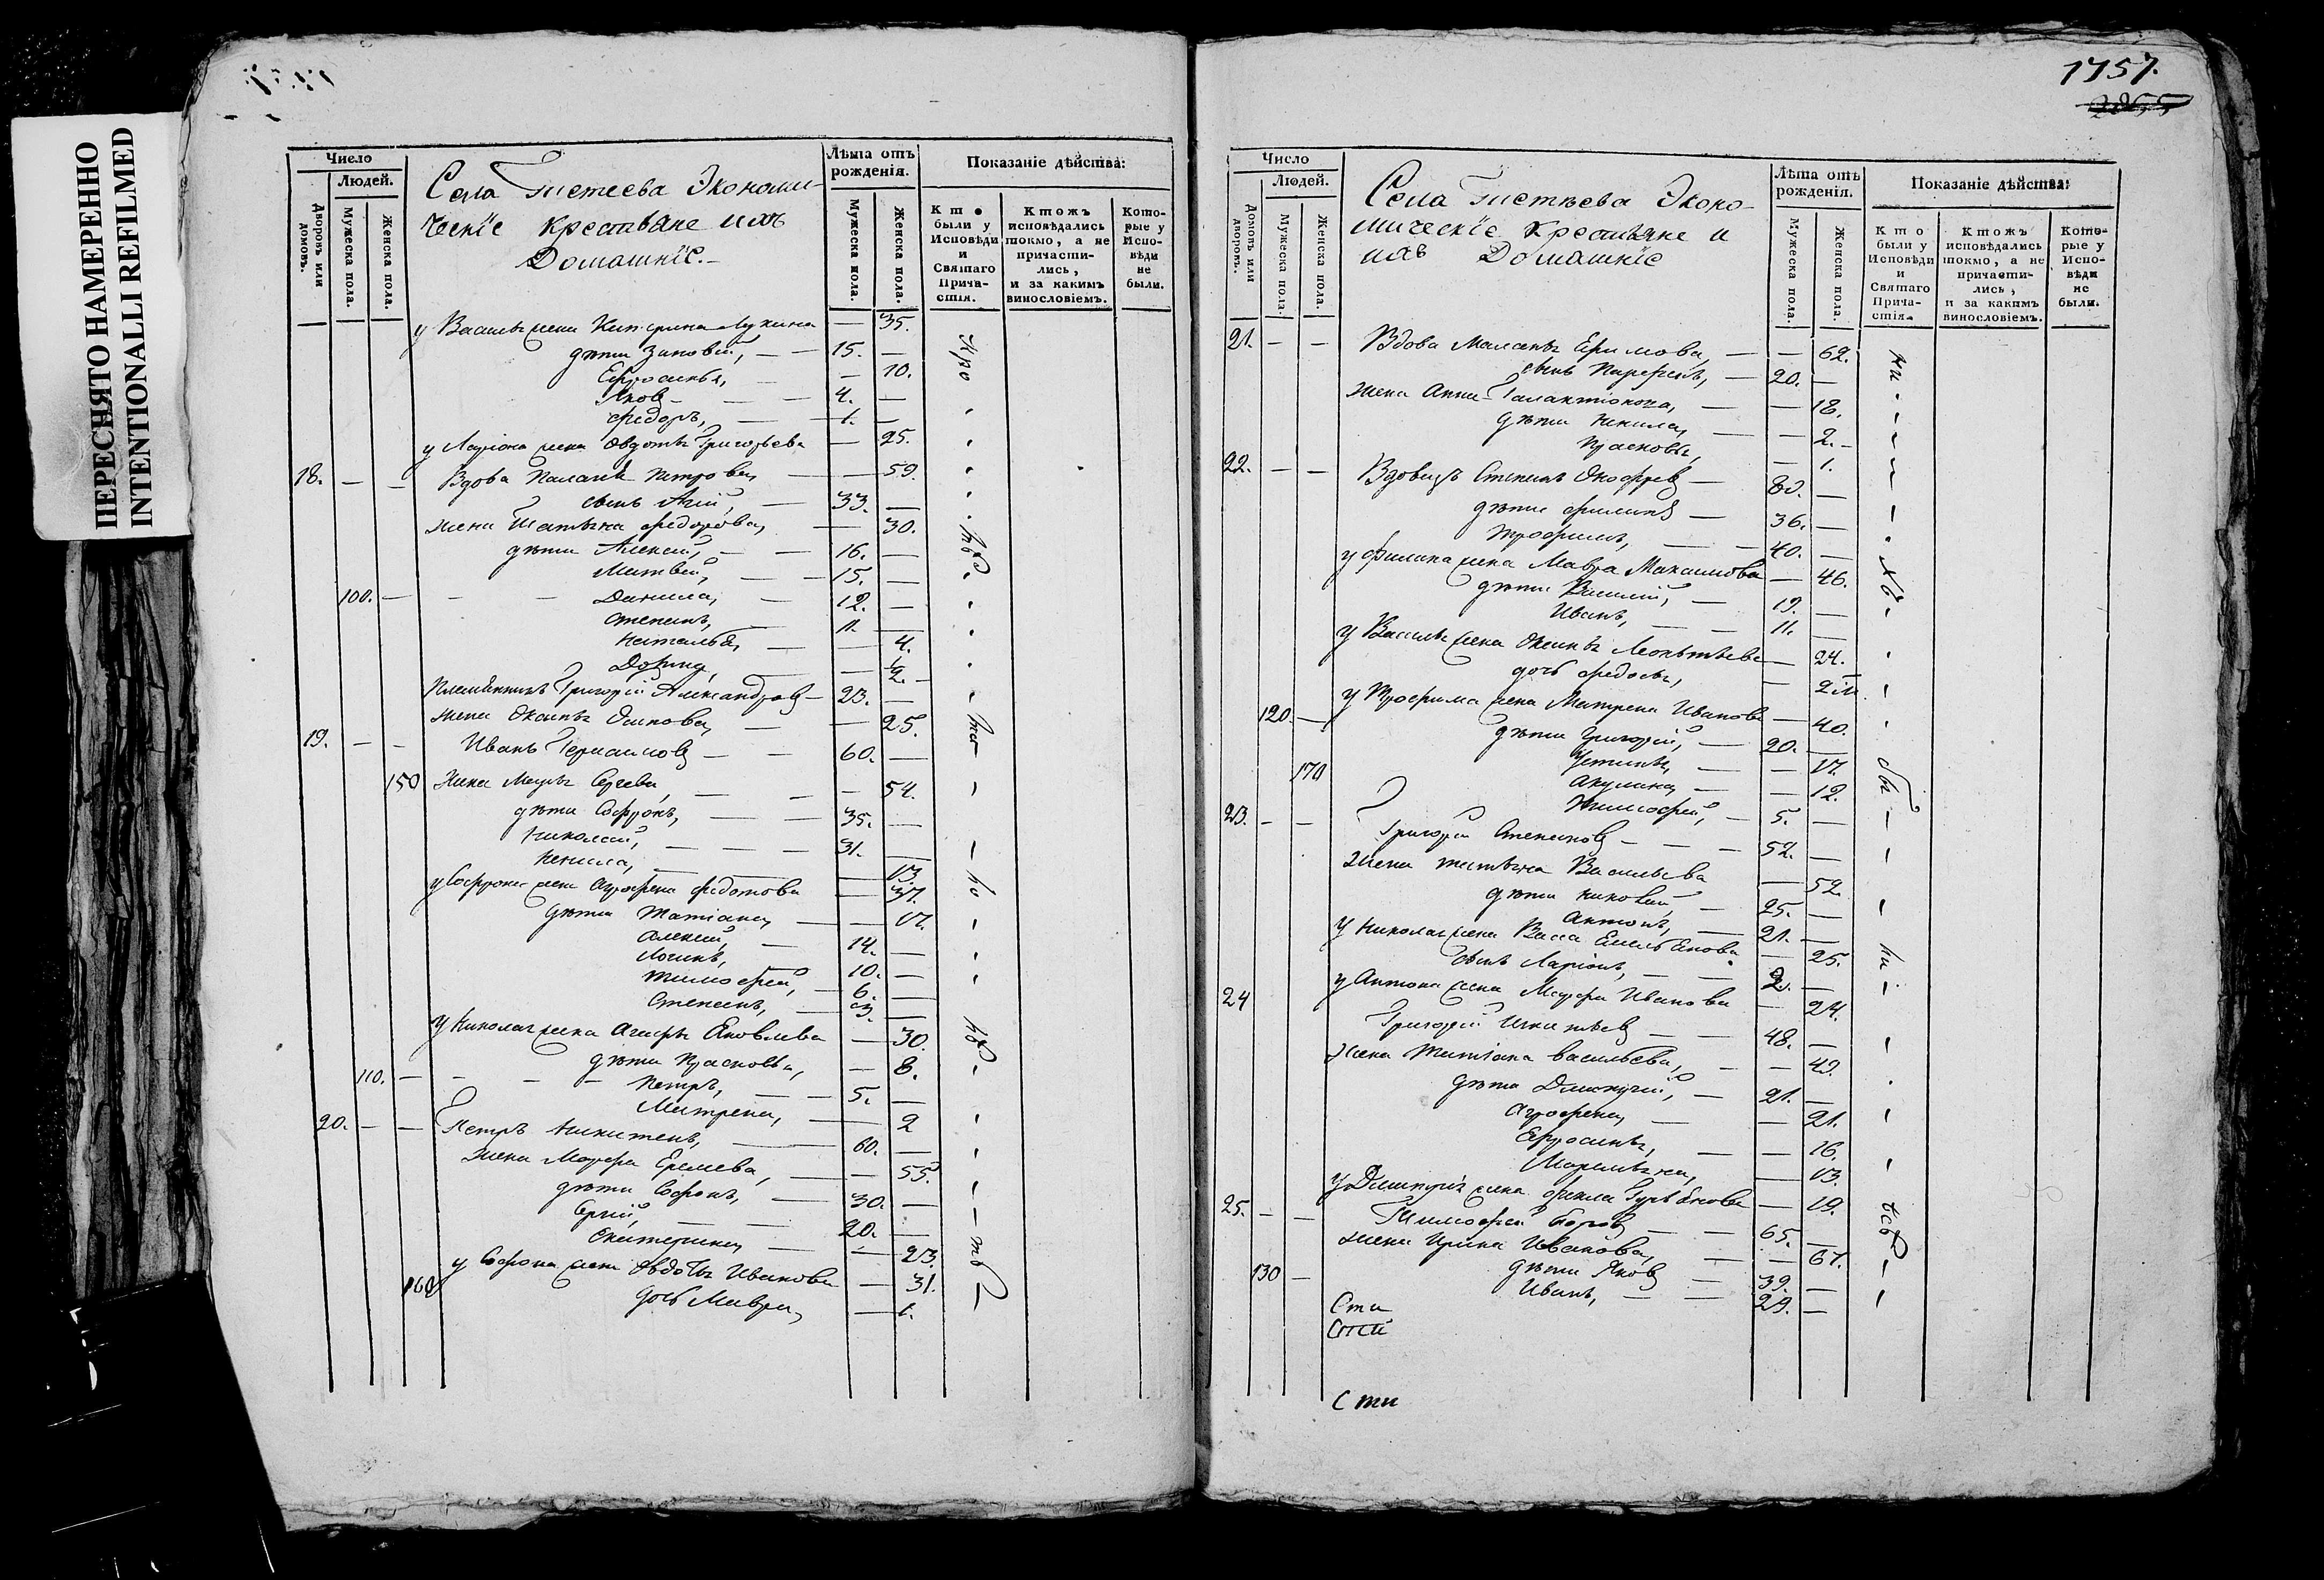 ПЕРЕСНЯТО НАМЕРЕННО
INTENTIONALLI REFILMED
Число
Людей.
Дворовъ или домовъ.
Мужеска пола.
Женска пола.
Села Экономи-
ческіе крестьяне ихъ
Домашніе.
Лѣта отъ рожденія.
Мужеска пола.
Женска пола.
Показаніе дѣйства:
Кто были у Исповѣди и Святаго Причастія.
Ктожъ исповѣдались токмо, а не причастились, и за какимъ винословіемъ.
Которые у Исповѣди не были.
у Василья жена Катерина Лукина — 35.
дѣти Зиновей, — 15. —
Ефросинья, — 10.
Яковъ — 4. —
Федоръ, — 1. —
у Ларіона жена Овдотья Григорьева — 25.
18. — — Вдова Палагея Петрова — 59.
сынъ 33. —
жена Татьяна Федорова, — 30.
дѣти Алексей, — 16. —
Матвей, — 15. —
100. — Данила, — 12. —
Степанъ, — 11. —
Наталья, — 4.
— 1/2. —
Племянникъ Григорій Александровъ — 23. —
жена Оксинья Осипова, — 25.
19. — — Иванъ Герасимовъ — 60. —
150 Жена Марья Сергева, — 54.
дѣти Софронъ, — 35. —
Николай, — 31. —
Ненила, — 13.
у Софрона жена Агрофена Федотова — 37.
дѣти Татіана, — 17.
Алексей, — 14. —
Логинъ, — 10. —
Тимофей, — 6. —
Степанъ, — 3. —
у Николая жена Агафья Яковлева — 30.
дѣти Прасковья, — 8.
110. — Петръ, — 5. —
Матрена, — 2
20. — — Петръ Никитинъ, — 60. —
жена Марфа Еремева, — 55.
дѣти Софронъ, — 30. —
Сергій, — 20. —
Екатерина — 23.
160 у Софрона жена Овдотья Иванова — 31.
дочь Мавра, — 1.
1757.
2865
Число
Людей.
Домовъ или дворовъ.
Мужеска пола.
Женска пола.
Села Эконо-
мическіе Крестьяне и
ихъ Домашніе
Лѣта отъ рожденія.
Мужеска пола.
Женска пола.
Показаніе дѣйства:
Кто были у Исповѣди и Святаго Причастія.
Ктожъ исповѣдались токмо, а не причастились, и за какимъ винословіемъ.
Которые у Исповѣди не были.
21. — — Вдова Маланья Ефимова, — 62.
сынъ Парфенъ, — 20. —
жена Анна Галактіонова, — 18.
дѣти Ненила, — 2. —
Прасковья, — 1.
22. — — Вдовецъ Степанъ Онофреевъ — 80. —
дѣти Филипъ — 36. —
Трофимъ, — 40. —
у Филипа жена Мавра Максимова — 46.
дѣти Василий, — 19. —
Иванъ, — 11. —
у Василья жена Оксинья Леонтьева — 24.
дочь Федосья, — 2
у Трофима жена Матрена Иванова — 40.
120. — дѣти Григорій, — 20. —
Устинья, — 17.
170 Акулина, — 12.
Тимофей, — 5. —
23. — — Григорій Степановъ — 52. —
жена Татьяна Васильева — 52.
дѣти Николай, — 25. —
Антонъ, — 21. —
у Николая жена Васса Емельянова — 25.
сынъ Ларіонъ, — 2. —
у Антона жена Марфа Иванова — 24.
24 Григорій Игнатьевъ — 48. —
Жена Татіана Васильева, — 49.
дѣти Димитрій, — 21. —
Агрофена, — 21.
Ефросинья, — 16.
— 13.
у Димитрія жена Фекла — 19.
25. — — Тимофей Егоровъ — 65. —
жена Ирина Иванова, — 67.
дѣти Яковъ — 39. —
130 — Иванъ, — 29. —
Сти
Стей
Сти